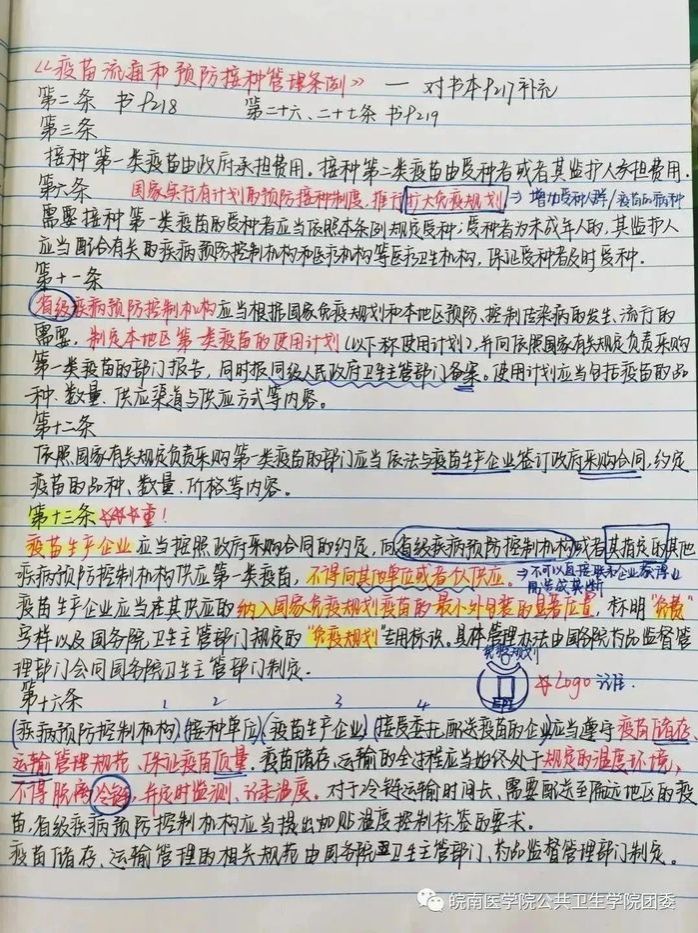 《疫苗流通和预防接种管理条例》 — 对书本P217补充
第二条 书P218 第二十六、二十七条 书P219
第三条
接种第一类疫苗由政府承担费用。接种第二类疫苗由受种者或者其监护人承担费用.
第六条 国家实行有计划的预防接种制度,推行扩大免疫规划 ⇒ 增加受种人群/疫苗的病种
需要接种第一类疫苗的受种者应当依照本条例规定受种;受种者为未成年人的,其监护人
应当配合有关的疾病预防控制机构和医疗机构等医疗卫生机构,保证受种者及时受种.
第十一条
省级疾病预防控制机构应当根据国家免疫规划和本地区预防、控制传染病的发生、流行的
需要,制定本地区第一类疫苗的使用计划(以下称使用计划),并向依照国家有关规定负责采购
第一类疫苗的部门报告,同时报同级人民政府卫生主管部门备案。使用计划应当包括疫苗的品
种、数量、供应渠道与供应方式等内容。
第十二条
依照国家有关规定负责采购第一类疫苗的部门应当依法与疫苗生产企业签订政府采购合同,约定
疫苗的品种、数量、价格等内容。
第十三条☆☆☆重!
疫苗生产企业应当按照政府采购合同的约定,向省级疾病预防控制机构或者其指定的其他
疾病预防控制机构供应第一类疫苗,不得向其他单位或者个人供应。⇒不可以直接联系企业
疫苗生产企业应当在其供应的纳入国家免疫规划疫苗的最小外包装的显著位置,标明“免费”
字样以及国务院卫生主管部门规定的“免疫规划”专用标识。具体管理办法由国务院药品监督管
理部门会同国务院卫生主管部门制定.
免疫规划
☆Logo
第十六条 1 2 3 4
(疾病预防控制机构)、(接种单位)、(疫苗生产企业)、(接受委托配送疫苗的企业)应当遵守疫苗储存、
运输管理规范,保证疫苗质量.疫苗储存、运输的全过程应当始终处于规定的温度环境,
不得脱离冷链,并定时监测、记录温度。对于冷链运输时间长、需要配送至偏远地区的疫
苗,省级疾病预防控制机构应当提出加贴温度控制标签的要求。
疫苗储存、运输管理的相关规范由国务院卫生主管部门、药品监督管理部门制定。
皖南医学院公共卫生学院团委